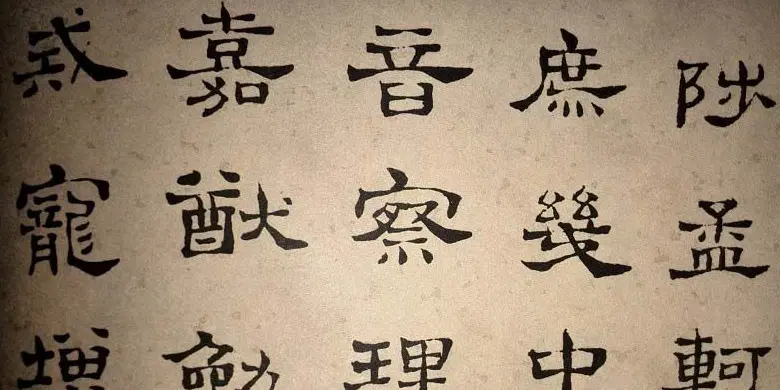 陟孟軻
庶幾中
音察理
嘉猷勉
戒寵增